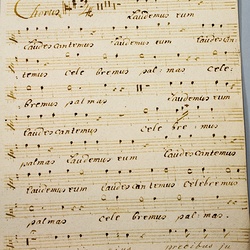 Chorus Laudemus eum
Laudes cantemus Laudemus eum Laudes can:
temus Cele bremus pal: mas cele:
bremus palmas Laudemus eum
Laudes cantemus Cele bre: mus
palmas Laudemus eum Laudes cantemus
Laudemus eum Laudes cantemus Celebremus
palmas cele bremus palmas.
precibus